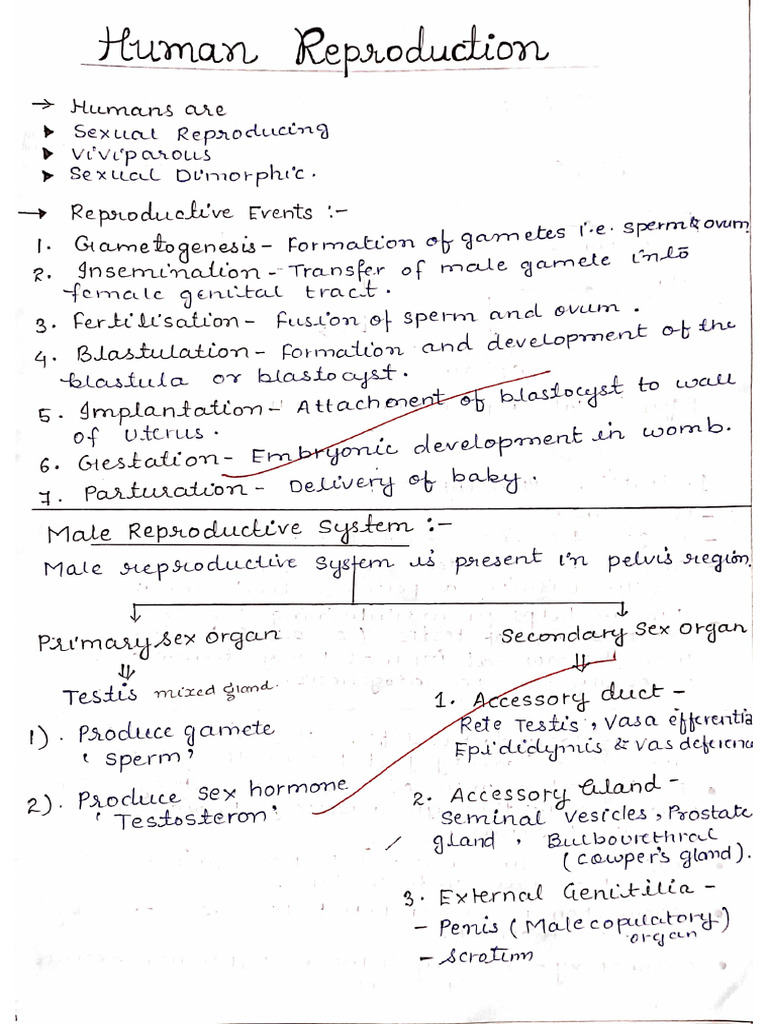 Human Reproduction
→ Humans are
▸ Sexual Reproducing
▸ Viviparous
▸ Sexual Dimorphic.
→ Reproductive Events :-
1. Gametogenesis - Formation of gametes i.e. sperm & ovum
2. Insemination - Transfer of male gamete into
female genital tract.
3. Fertilisation - Fusion of sperm and ovum.
4. Blastulation - Formation and development of the
blastula or blastocyst.
5. Implantation - Attachment of blastocyst to wall
of uterus.
6. Gestation - Embryonic development in womb.
7. Parturation - Delivery of baby.
Male Reproductive System :-
Male reproductive system is present in pelvis region
Primary sex organ
⇓
Testis mixed gland.
1). Produce gamete
'Sperm'
2). Produce sex hormone
'Testosteron'
Secondary Sex Organ
⇓
1. Accessory duct -
Rete Testis, Vasa efferentia
Epididymis & vas deferenc
2. Accessory Gland -
Seminal Vesicles, Prostate
gland, Bulbourethral
(Cowper's gland).
3. External Genitilia -
- Penis (Male copulatory
organ)
- Scrotim